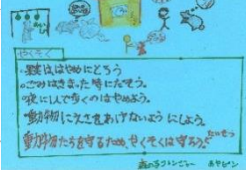 やくそく
・果実ははやめにとろう
・ごみはきまった時にだそう。
・夜に1人で歩くのはやめよう。
・動物にえさをあげないようにしよう。
動物たちを守るため、やくそくは守ろう！
森のラクンジャー